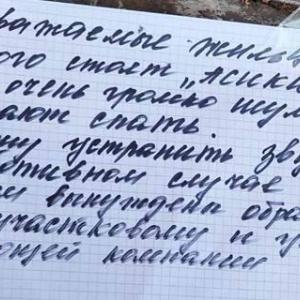 важаемые жильц
ого стоят „Асики
очень громко шум
ают спать
шу устранить зв
тивном случае
вынуждены обра
участковому и у
ющей компании